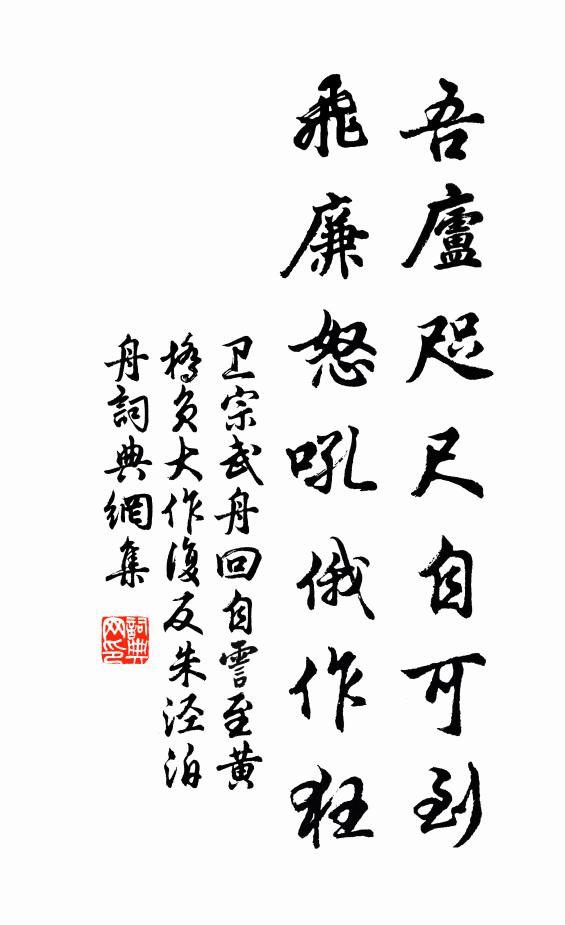 吾廬咫尺自可到
飛廉怒吼俄作狂
卫宗武舟回自霅至黄
橋风大作復反朱泾泊
舟詞典網集
詞典网印